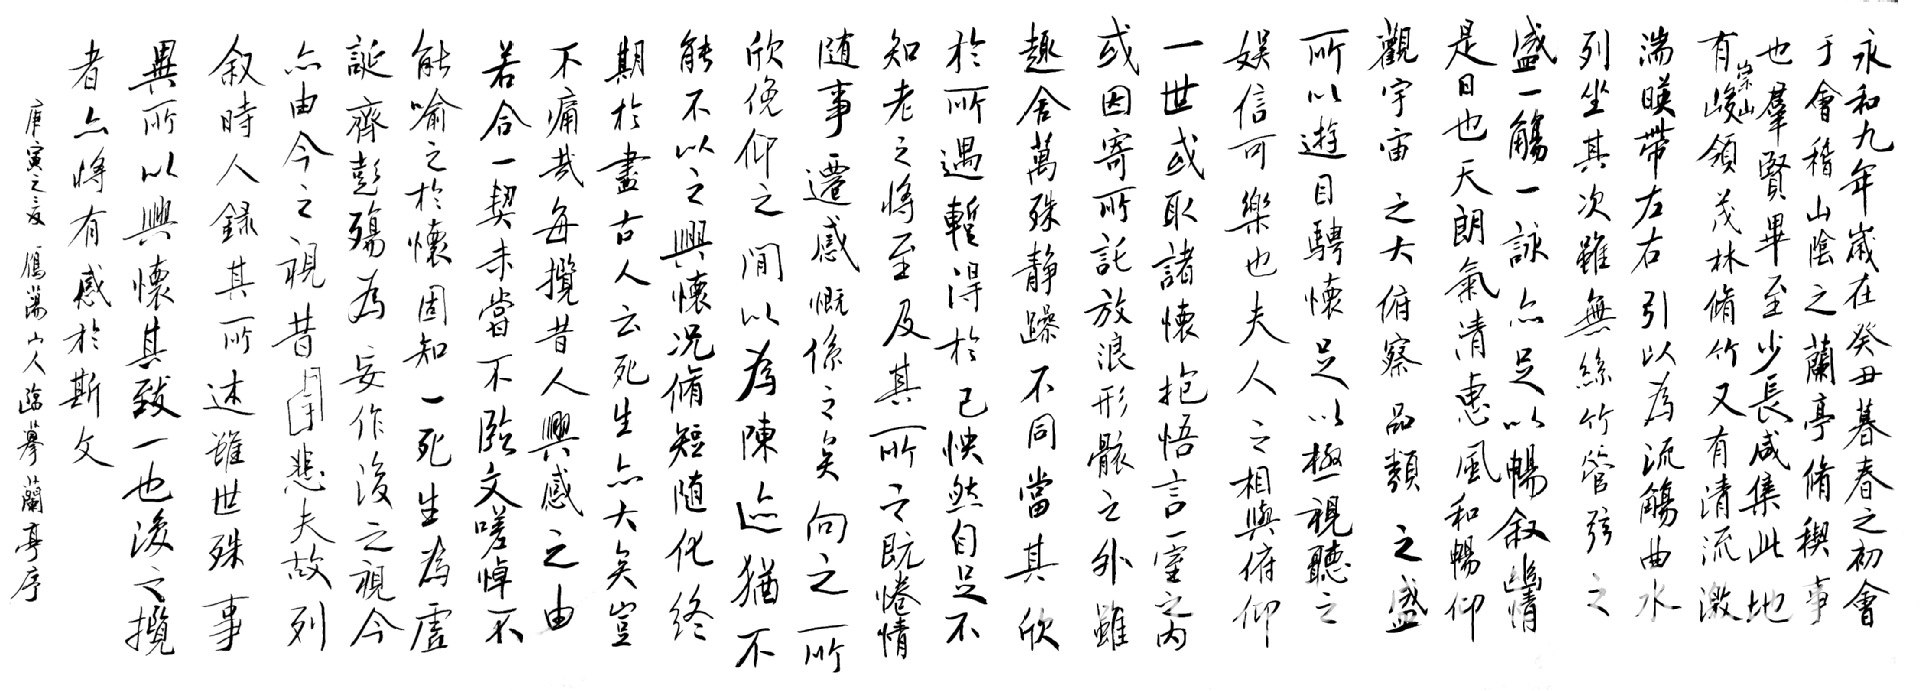 永和九年歲在癸丑暮春之初會
于會稽山陰之蘭亭脩稧事
也羣賢畢至少長咸集此地
有崇山峻領茂林脩竹又有清流激
湍暎帶左右引以為流觴曲水
列坐其次雖無絲竹管弦之
盛一觴一詠亦足以暢叙幽情
是日也天朗氣清惠風和暢仰
觀宇宙之大俯察品類之盛
所以遊目騁懷足以極視聽之
娛信可樂也夫人之相與俯仰
一世或取諸懷抱悟言一室之內
或因寄所託放浪形骸之外雖
趣舍萬殊静躁不同當其欣
於所遇暫得於己怏然自足不
知老之將至及其所之既惓情
随事遷感慨係之矣向之所
欣俛仰之間以為陳迹猶不
能不以之興懷况脩短随化終
期於盡古人云死生亦大矣豈
不痛哉每攬昔人興感之由
若合一契未嘗不臨文嗟悼不
能喻之於懷固知一死生為虛
誕齊彭殤為妄作後之視今
亦由今之視昔悲夫故列
叙時人録其所述雖世殊事
異所以興懷其致一也後之攬
者亦將有感於斯文
庚寅之夏雁蕩山人臨摹蘭亭序